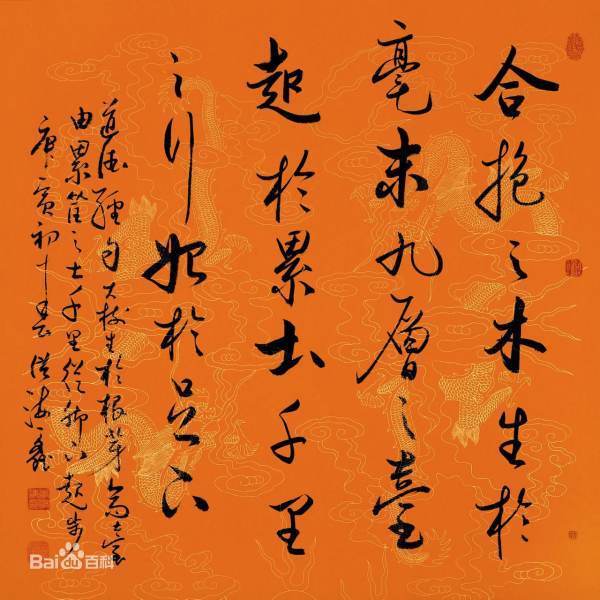 合抱之木生於
毫末九層之臺
起於累土千里
之行始於足下
道德經句大樹生於根芽高臺
由累筐之土千里從腳下起步
庚寅初
Bai百科